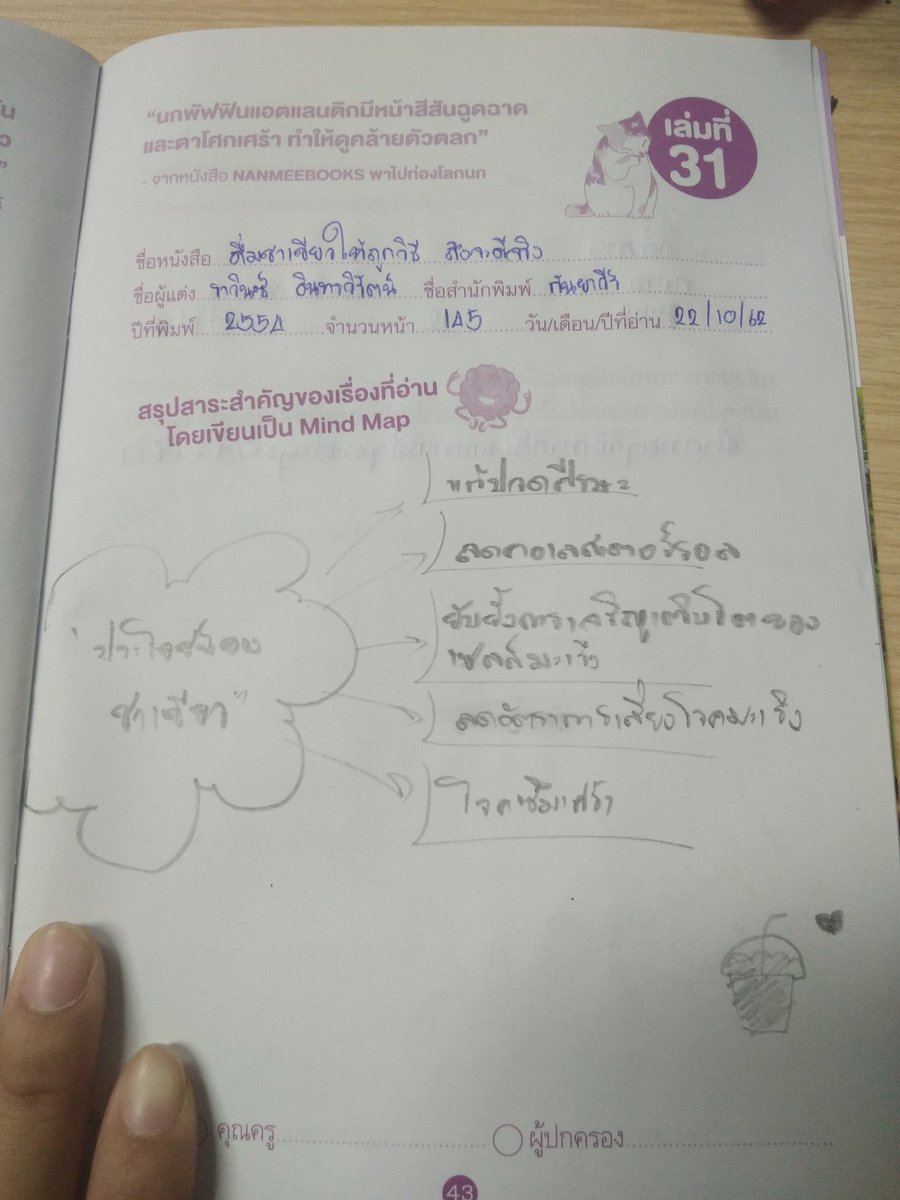 "นกพัฟฟินแอตแลนติกมีหน้าสีสันฉูดฉาด
และตาโศกเศร้า ทำให้ดูคล้ายตัวตลก"
- จากหนังสือ NANMEEBOOKS พาไปท่องโลกนก
เล่มที่
31
ชื่อหนังสือ ดื่มชาเขียวให้ถูกวิธี สิจะดีจริง
ชื่อผู้แต่ง อินทาวิรัตน์ ชื่อสำนักพิมพ์
ปีที่พิมพ์ 2554 จำนวนหน้า 145 วัน/เดือน/ปีที่อ่าน 22/10/62
สรุปสาระสำคัญของเรื่องที่อ่าน
โดยเขียนเป็น Mind Map
แก้ปวดศีรษะ
ลดคอเลสเตอร์รอล
"ประโยชน์ของ
ชาเขียว"
ยับยั้งการเจริญเติบโตของ
เซลล์มะเร็ง
ลดอัตราการเสี่ยงโรคมะเร็ง
โรคซึมเศร้า
คุณครู
ผู้ปกครอง
43